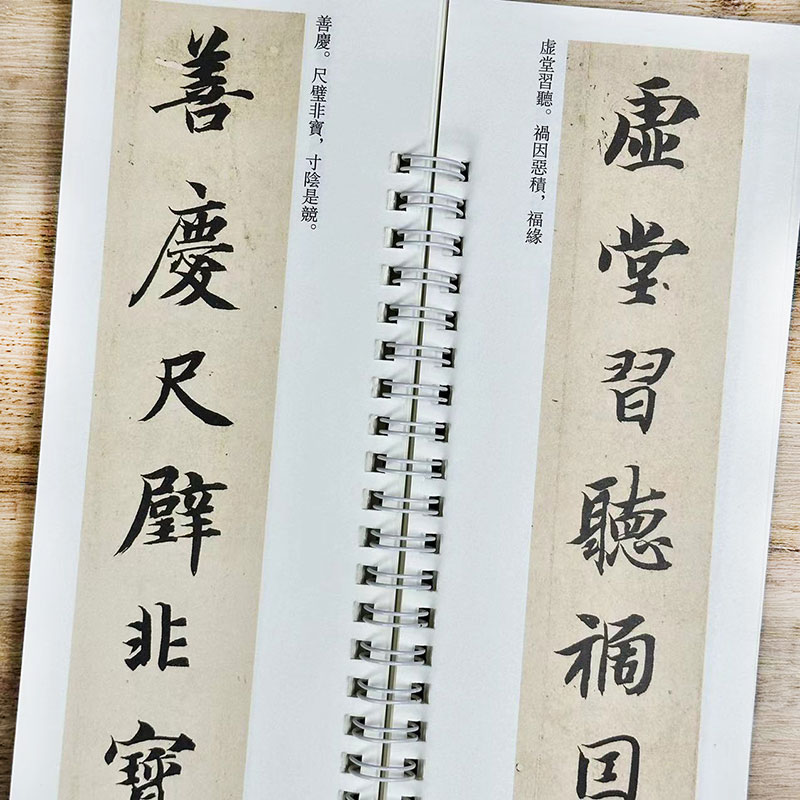 虚堂習聽。禍因惡積，福緣
虚堂習聽禍因
善慶。尺璧非寶，寸陰是競。
善慶尺璧非寶